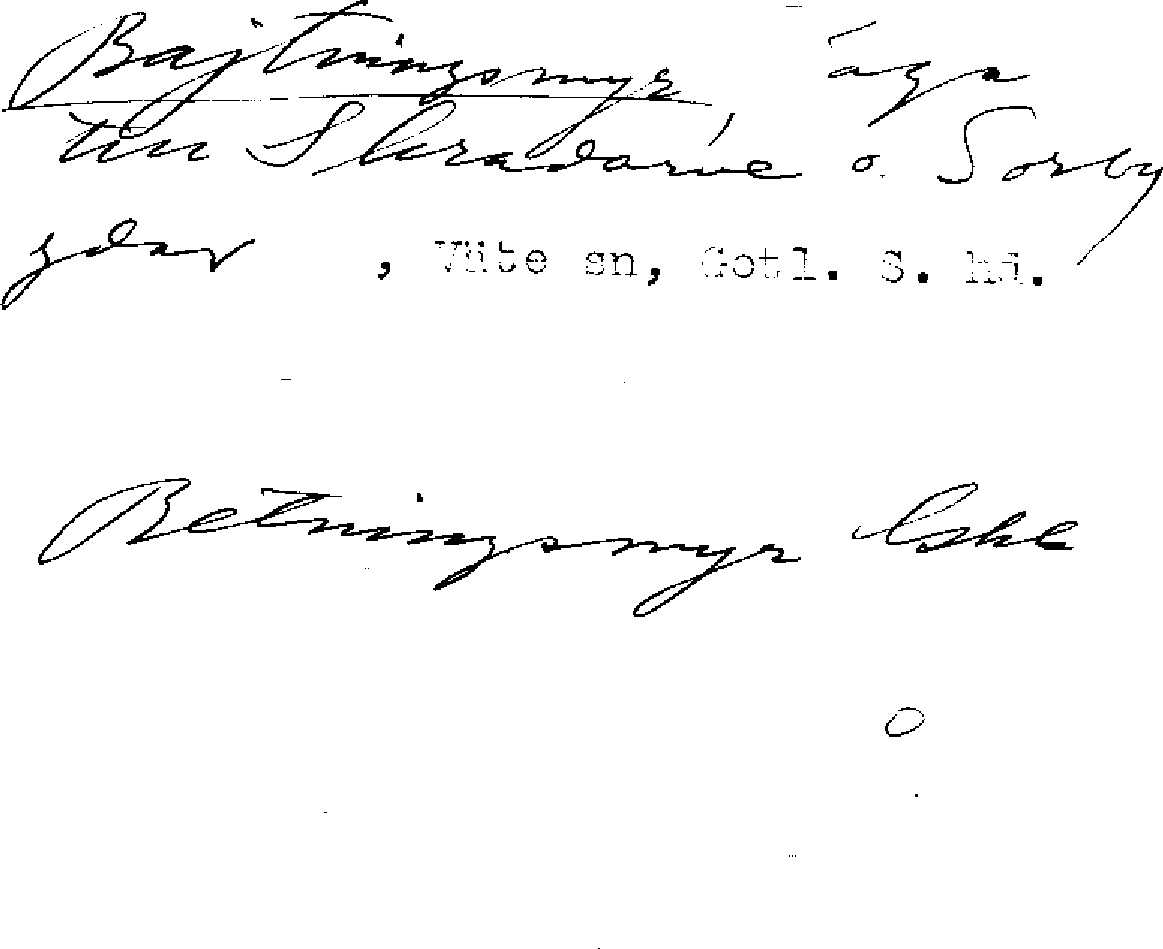 Bajtningsmyr äga
till Skradarve o. Sorby
gdar , Väte sn, Gotl. S. hd.
Betningsmyr Eske